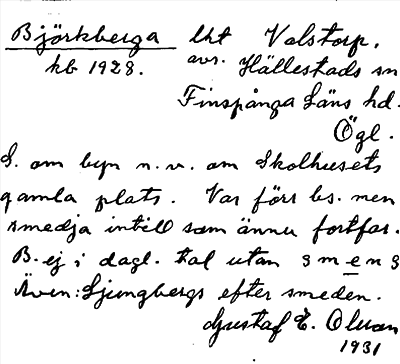 Björkberga lht Valstorp.
kb 1928. avs. Hällestads sn
Finspånga Läns hd.
Ögl.
S. om byn n.v. om Skolhusets
gamla plats. Var förr bs. men
smedja intill som ännu fortfar.
B. ej i dagl. tal utan smens
Även: Ljungbergs efter smeden.
Gustaf E. Olsson
1931